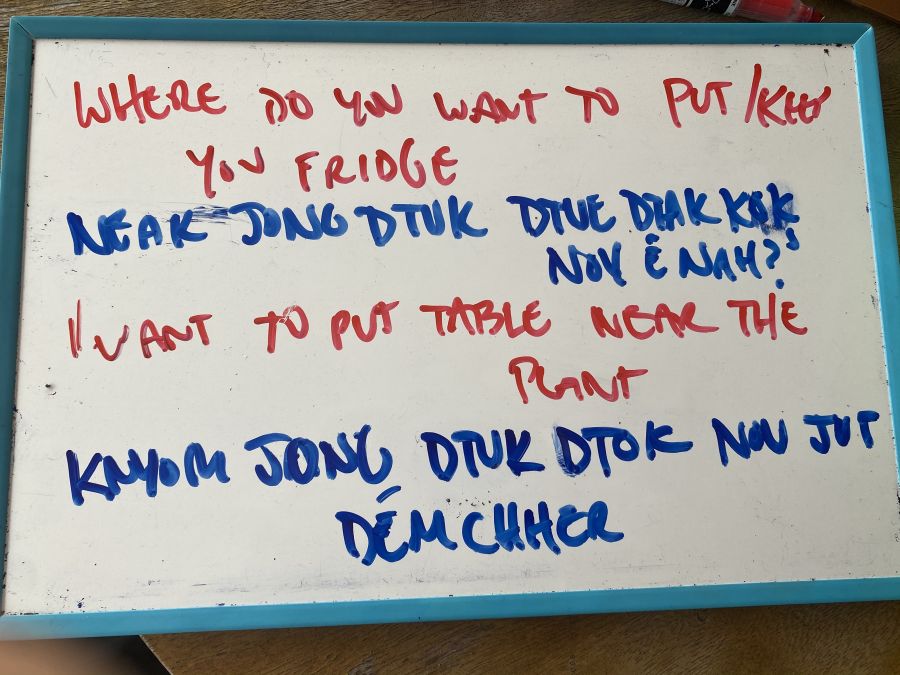 WHERE DO YOU WANT TO PUT/KEEP
YOU FRIDGE
NEAK JONG DTUK DTUE DTAK KOK
NOV È NAH?
I WANT TO PUT TABLE NEAR THE
PLANT
KNYOM JONG DTUK DTOK NOV JUT
DÉMCHHER